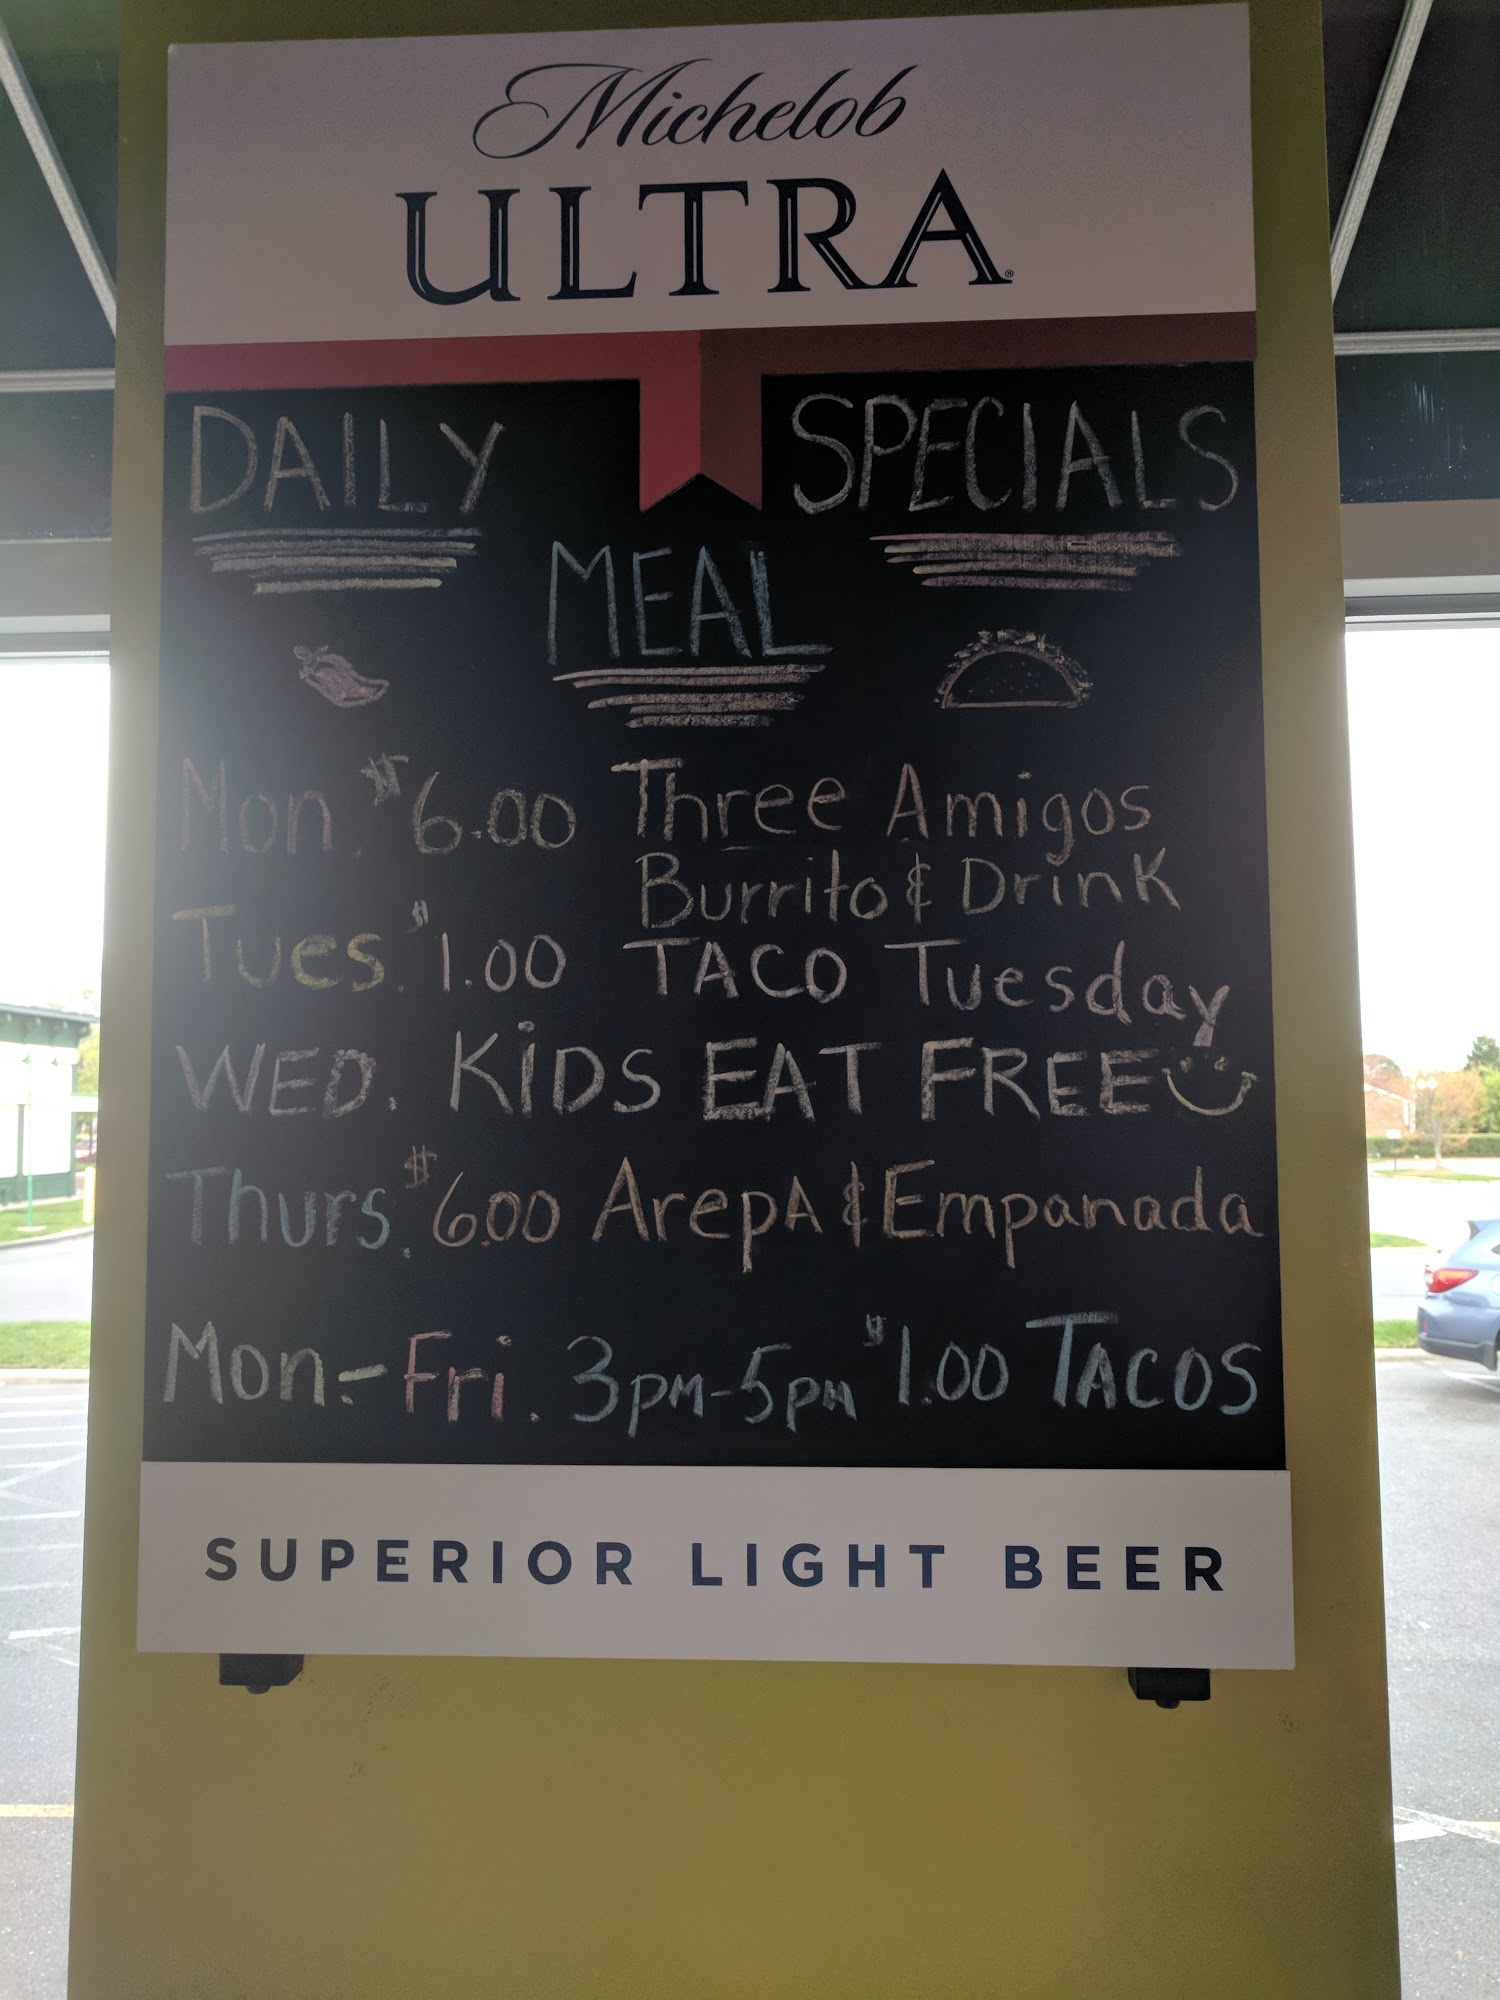 Michelob
ULTRA®
DAILY SPECIALS
MEAL
Mon. $6.00 Three Amigos
Burrito & Drink
Tues. $1.00 TACO Tuesday
WED. KiDS EAT FREE
Thurs. $6.00 ArepA & Empanada
Mon.- Fri. 3pm-5pm $1.00 TACOS
SUPERIOR LIGHT BEER